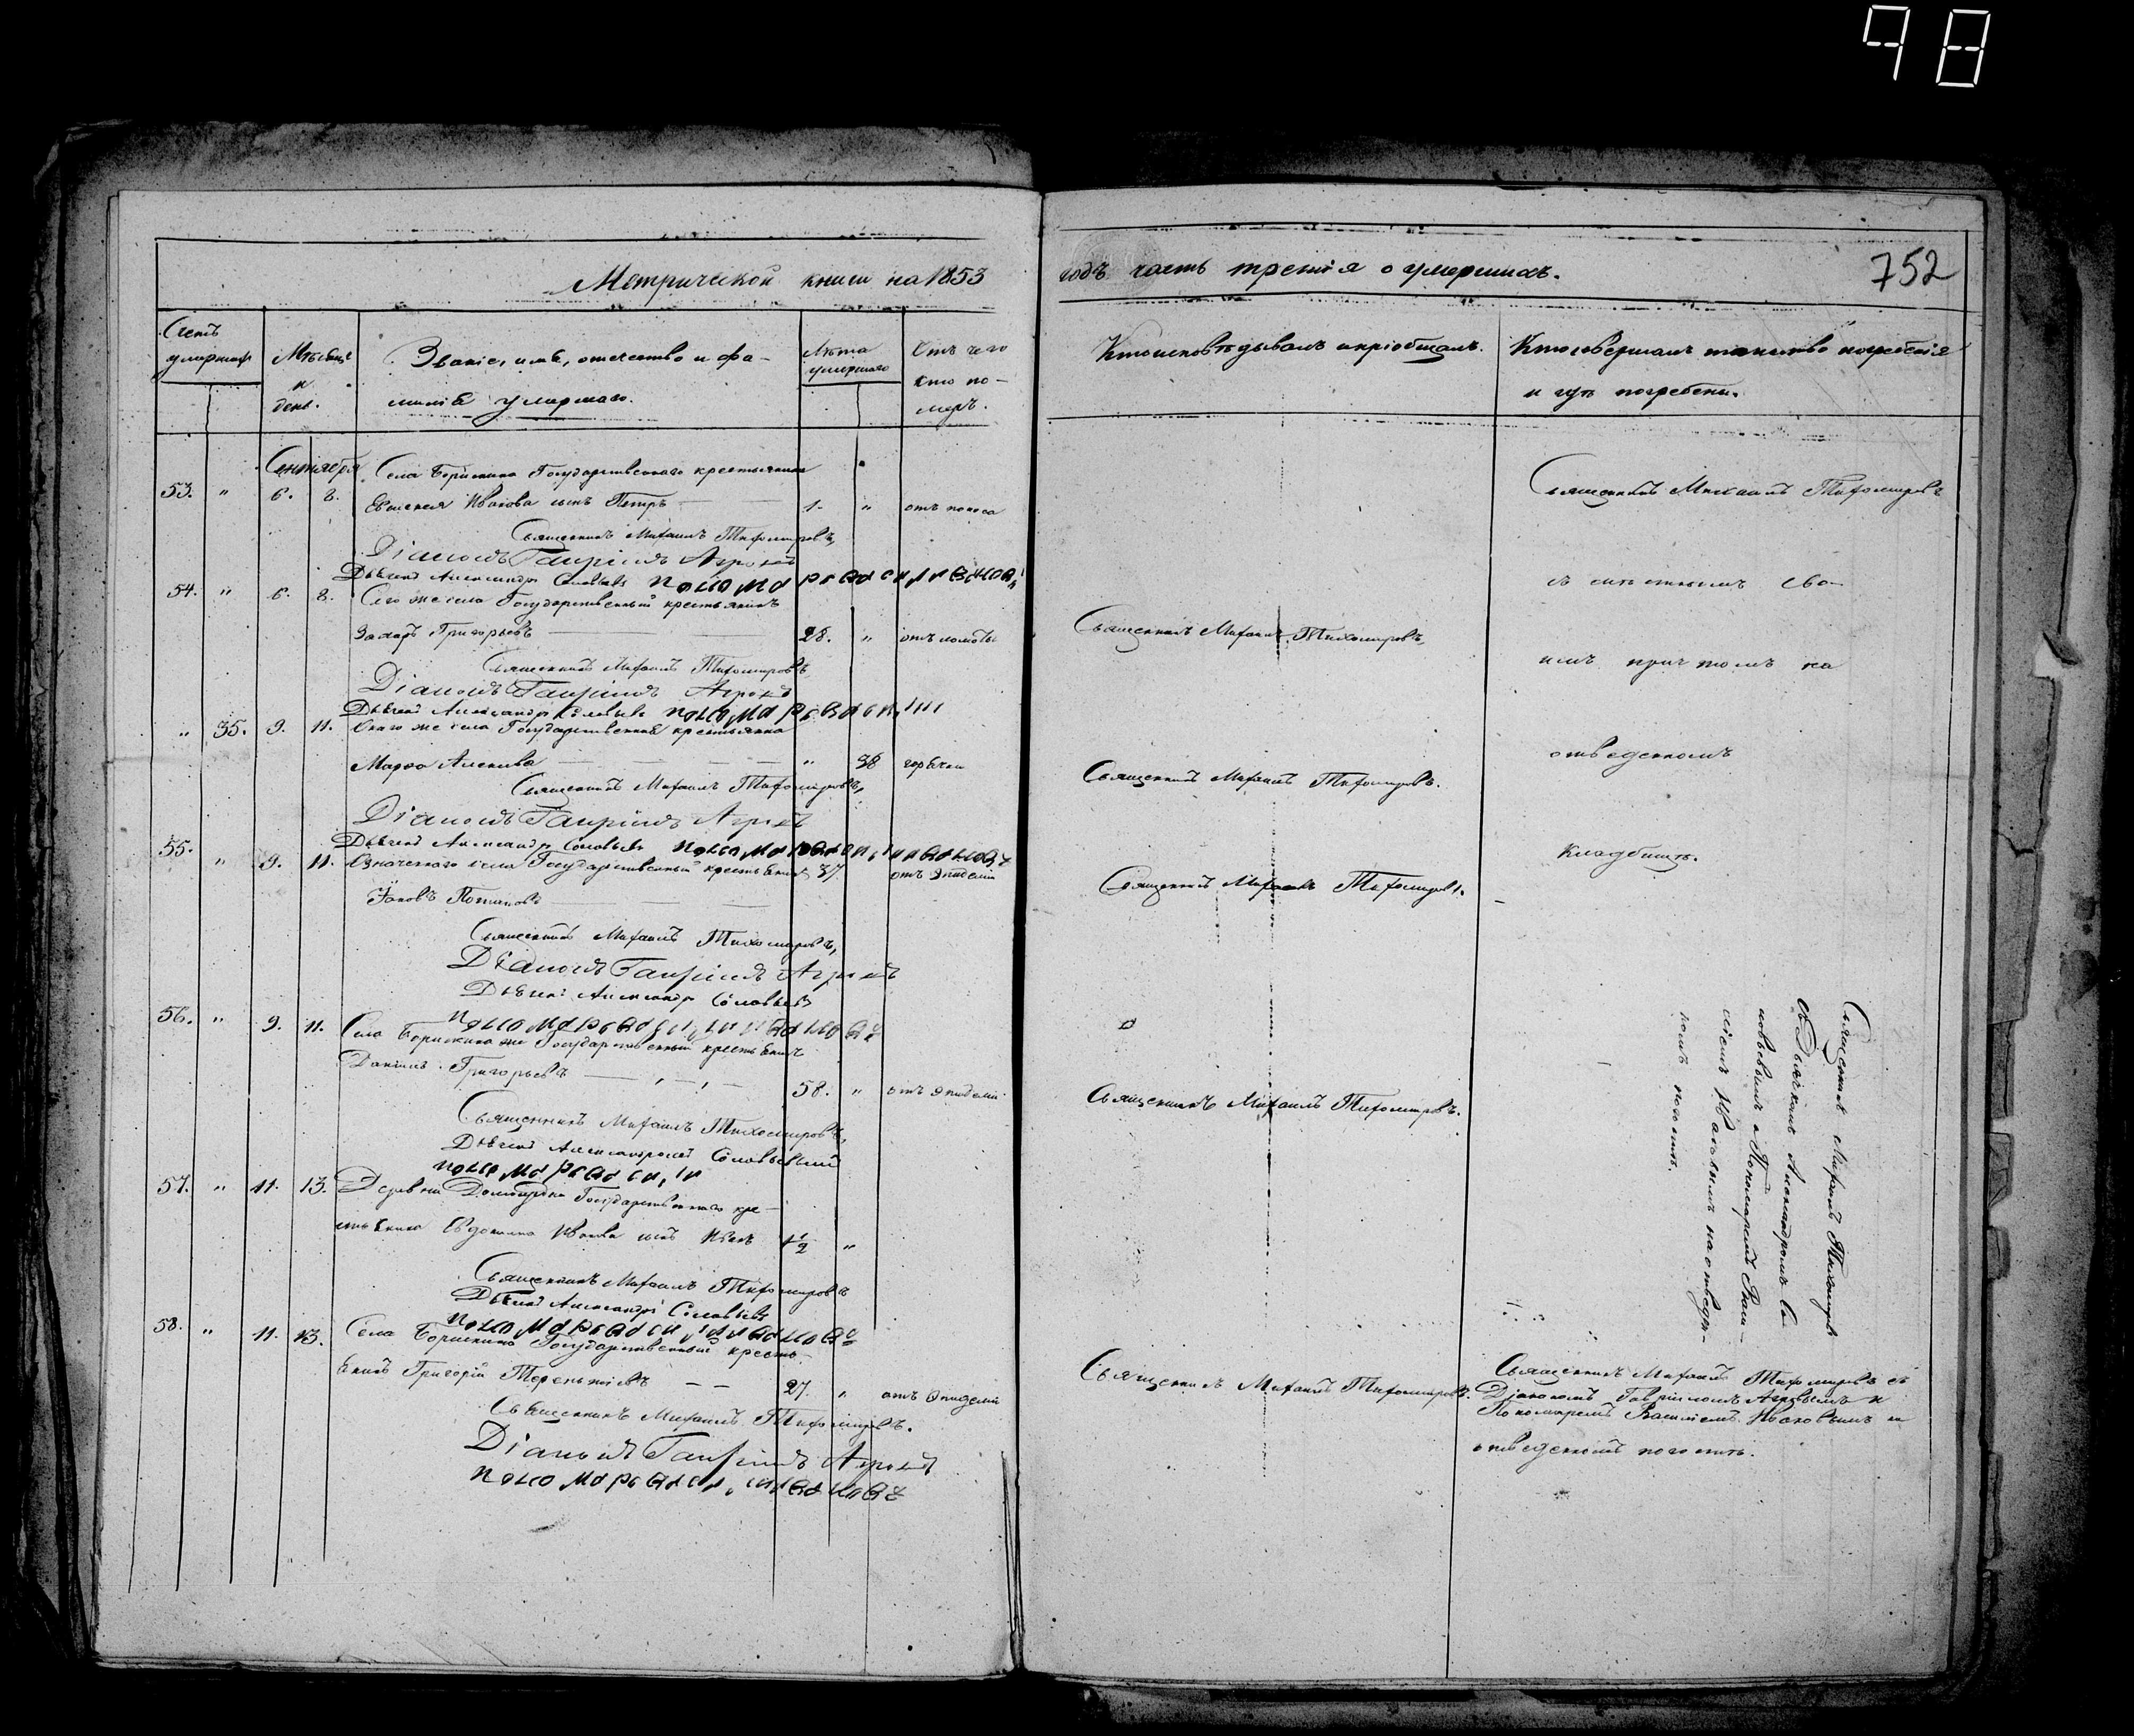 98
Метрической книги на 1853
годъ часть третія о умершихъ.
752
Счетъ умершихъ
Мѣсяцъ и день.
Званіе, имя, отечество и фамилія умершаго.
Лѣта умершаго
Отъ чего кто померъ.
Кто исповѣдывалъ и пріобщалъ.
Кто совершалъ таинство погребенія
и гдѣ погребены.
Сентября
53. " 6. 8. Села Государственнаго крестьянина
Иванова сынъ Петръ 1. " отъ поноса
Священникъ Михаилъ Тихомировъ
Священникъ Михаилъ Тихомировъ,
Діаконъ Гавріилъ
Дьячекъ Александръ Соловьевъ пономарь Василій Ивановъ
54. " 6. 8. Сего же села Государственный крестьянинъ
Захаръ Григорьевъ 28. " отъ
Священникъ Михаилъ Тихомировъ,
съ
Священникъ Михаилъ Тихомировъ
имъ причтомъ на
Діаконъ Гавріилъ
Дьячекъ Александръ Соловьевъ пономарь Василій
" 35. 9. 11. Онаго же села Государственная крестьянка
Марѳа " 38 горячки
Священникъ Михаилъ Тихомировъ.
отведенномъ
Священникъ Михаилъ Тихомировъ,
Діаконъ Гавріилъ
Дьячекъ Александръ Соловьевъ пономарь Василій Ивановъ
55. " 9. 11. Означеннаго села Государственный крестьянинъ 37 отъ эпидеміи
Яковъ
Священникъ Михаилъ Тихомировъ.
кладбищѣ.
Священникъ Михаилъ Тихомировъ,
Діаконъ Гавріилъ
Дьячекъ Александръ Соловьевъ
пономарь Василій Ивановъ
56. " 9. 11. Села же Государственный крестьянинъ
Даніилъ Григорьевъ 58. " отъ эпидеміи
Священникъ Михаилъ Тихомировъ.
Священникъ Михаилъ Тихомировъ,
Дьячекъ Александръ Соловьевъ
пономарь Василій
Священникъ Михаилъ Тихомировъ
съ Дьячкомъ Александромъ Со-
ловьевымъ и Пономаремъ Васи-
ліемъ Ивановымъ на отведен-
номъ погостѣ.
57. " 11. 13. Деревни Государственнаго кре-
стьянина Евдокима Иванова сынъ Иванъ 1½ "
Священникъ Михаилъ Тихомировъ
Дьячекъ Александръ Соловьевъ
пономарь Василій Ивановъ
58. " 11. 13. Села Государственный кресть-
янинъ Григорій Терентьевъ 27. " отъ эпидеміи
Священникъ Михаилъ Тихомировъ.
Священникъ Михаилъ Тихомировъ съ
Діакономъ Гавріиломъ и
Пономаремъ Василіемъ Ивановымъ на
отведенномъ погостѣ.
Священникъ Михаилъ Тихомировъ.
Діаконъ Гавріилъ
пономарь Василій Ивановъ